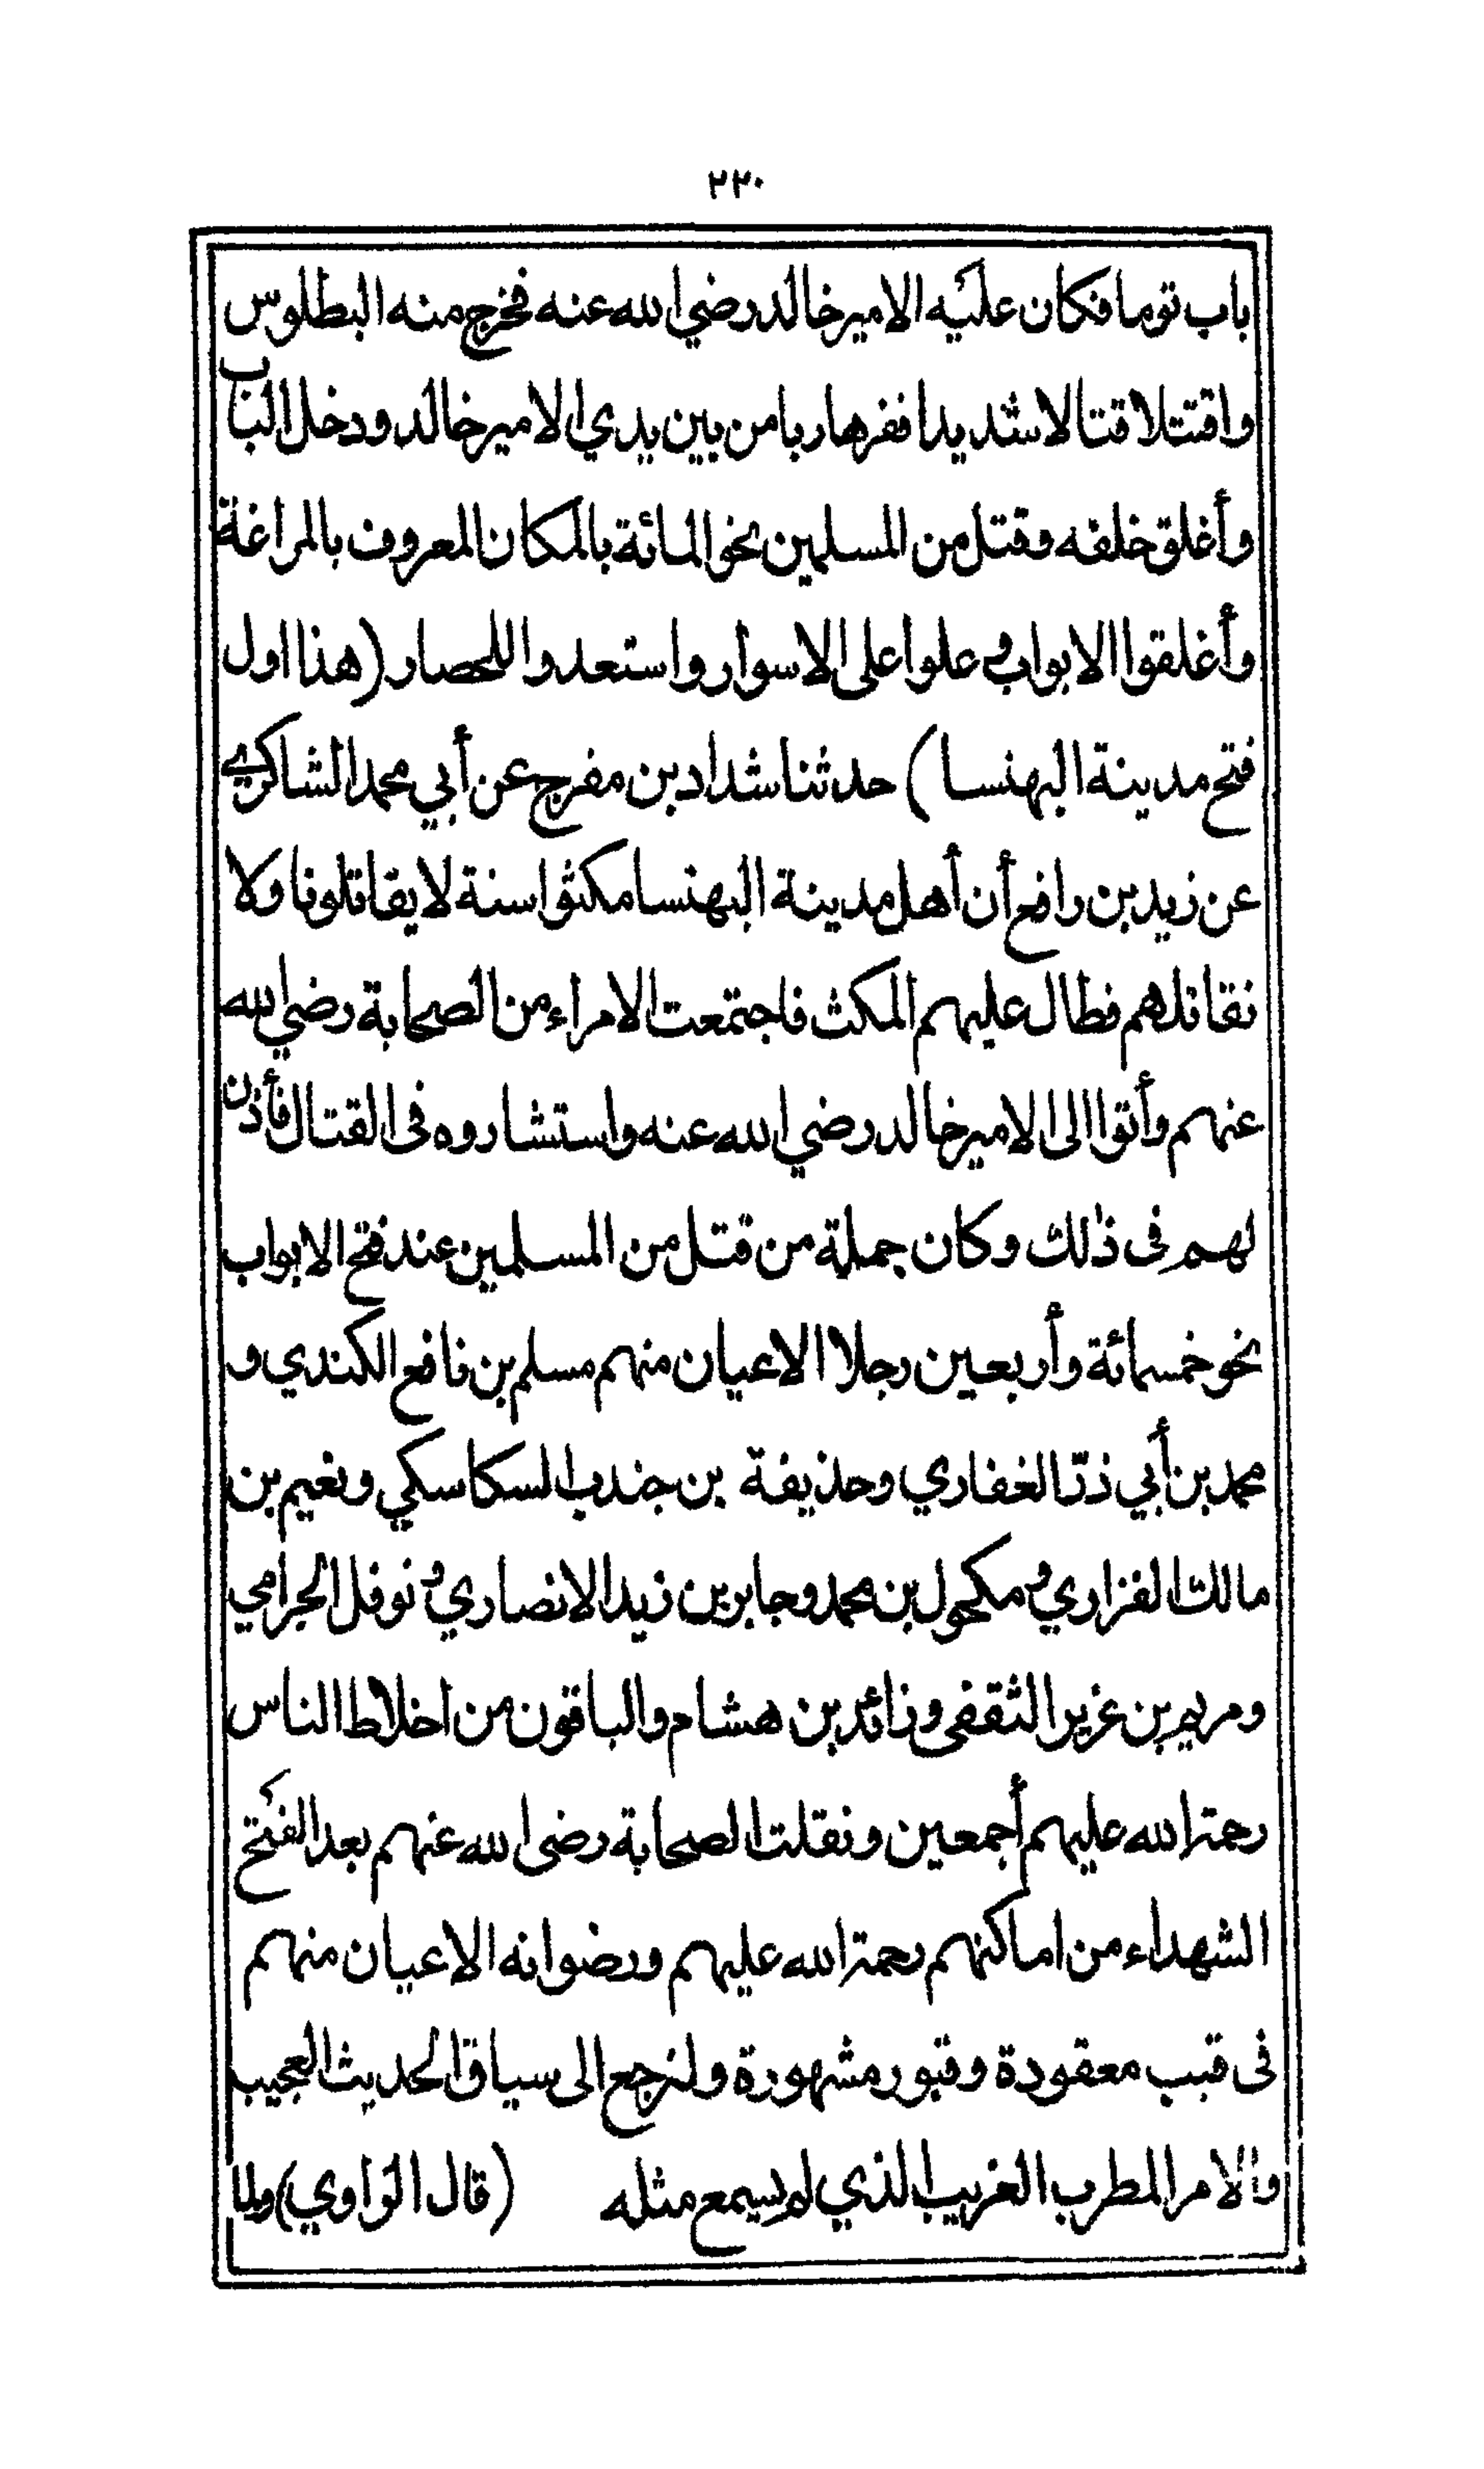 ٢٢٠
باب توما فكان عليه الامير خالد رضي الله عنه فخرج منه البطلوس
واقتتلا قتالا شديدا ففر هاربا من بين يدي الامير خالد ودخل الباب
وأغلق خلفه وقتل من المسلمين نحو المائة بالمكان المعروف بالمراغة
وأغلقوا الابواب وعلوا على الاسوار واستعدوا للحصار (هذا اول
فتح مدينة البهنسا) حدثنا شداد بن مفرج عن أبي محمد الشاكري
عن زيد بن رافع أن أهل مدينة البهنسا مكثوا سنة لا يقاتلونا ولا
نقاتلهم فطال عليهم المكث فاجتمعت الامراء من الصحابة رضي الله
عنهم وأتوا الى الامير خالد رضي الله عنه واستشاروه فى القتال فأذن
لهم فى ذلك وكان جملة من قتل من المسلمين عند فتح الابواب
نحو خمسمائة وأربعين رجلا الاعيان منهم مسلم بن نافع الكندي و
محمد بن أبي ذرّ الغفاري وحذيفة بن جندب السكاسكي ونعيم بن
مالك الفزاري ومكحول بن محمد وجابر بن زيد الانصاري ونوفل الجرامي
ومريم بن غرير الثقفى وزائد بن هشام والباقون من اخلاط الناس
رحمة الله عليهم أجمعين ونقلت الصحابة رضى الله عنهم بعد الفتح
الشهداء من اماكنهم رحمة الله عليهم ورضوانه الاعيان منهم
فى قبب معقودة وقبور مشهورة ولنرجع الى سياق الحديث العجيب
والامر المطرب الغريب الذي لم يسمع مثله (قال الراوي) ولما